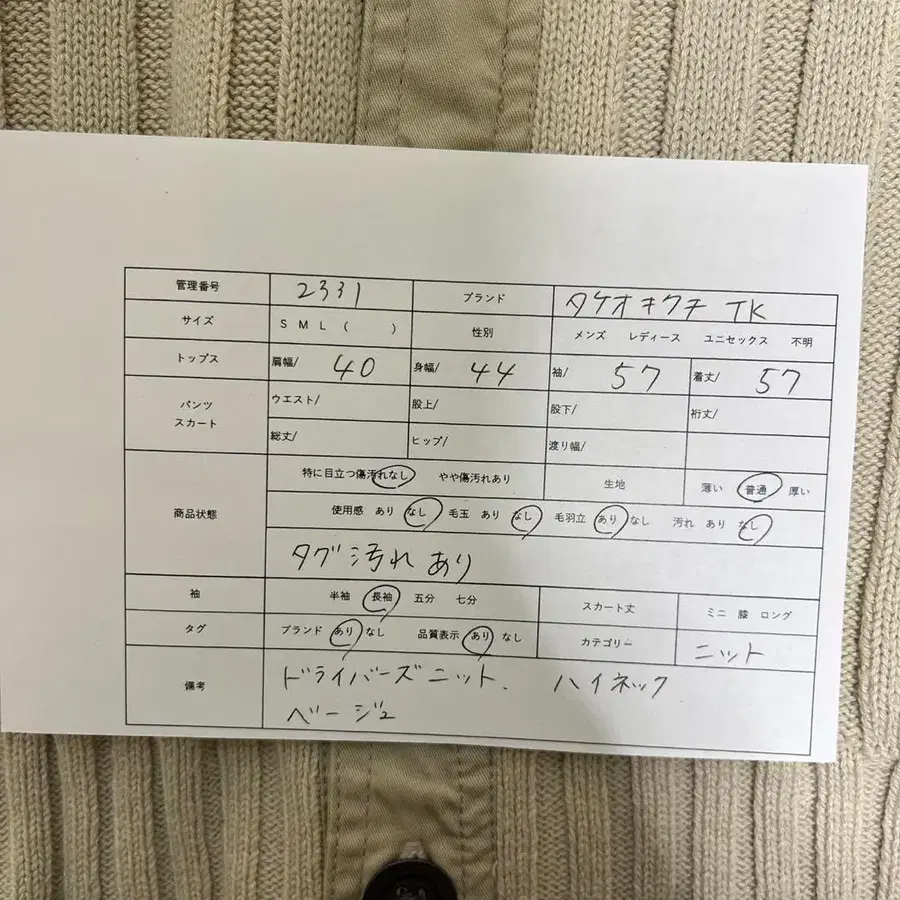 管理番号 2331 ブランド タケオキクチ TK
サイズ S M L ( ) 性別 メンズ レディース ユニセックス 不明
トップス 肩幅/ 40 身幅/ 44 袖/ 57 着丈/ 57
パンツ スカート ウエスト/ 股上/ 股下/ 裄丈/
総丈/ ヒップ/ 渡り幅/
商品状態 特に目立つ傷汚れなし やや傷汚れあり 生地 薄い 普通 厚い
使用感 あり なし 毛玉 あり なし 毛羽立 あり なし 汚れ あり なし
タグ汚れあり
袖 半袖 長袖 五分 七分 スカート丈 ミニ 膝 ロング
タグ ブランド あり なし 品質表示 あり なし カテゴリー ニット
備考 ドライバーズニット. ハイネック
ベージュ